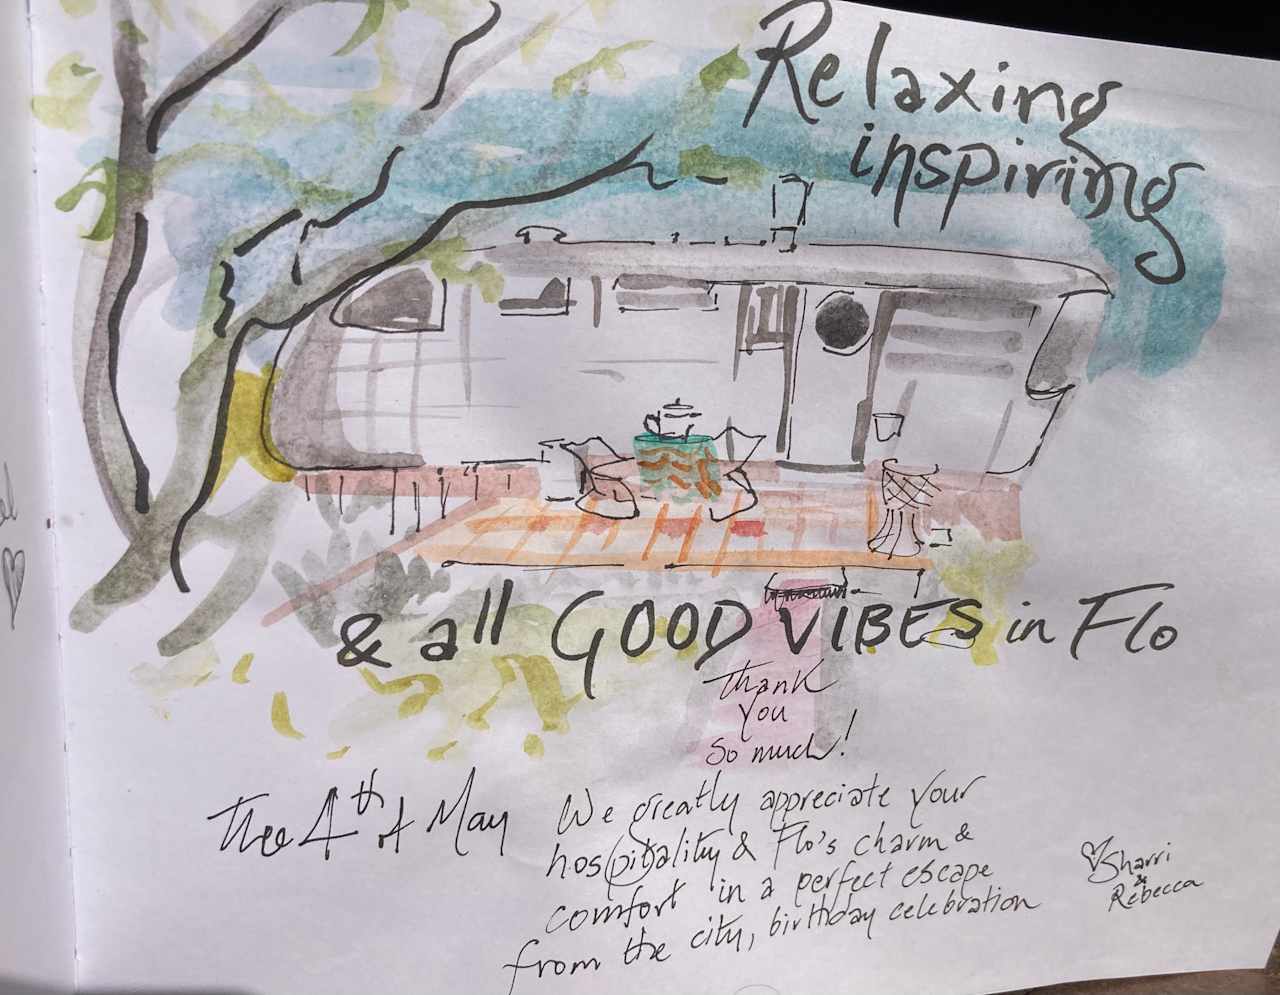 Relaxing
inspiring
& all GOOD VIBES in Flo
Thank
you
so much!
The 4th of May
We greatly appreciate your
hospitality & Flo's charm &
comfort in a perfect escape
from the city, birthday celebration
Sharri
&
Rebecca